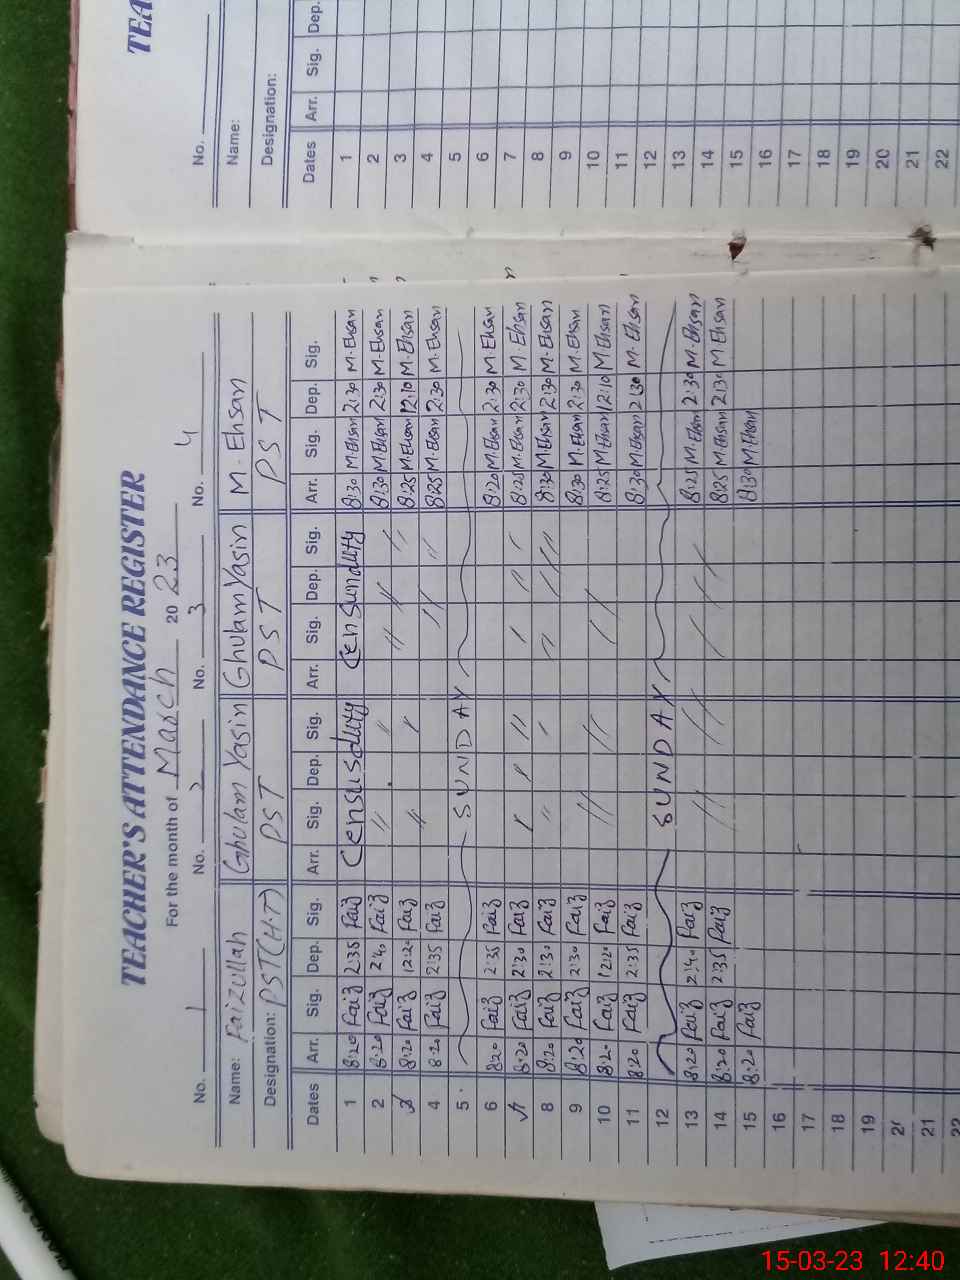 TEACHER'S ATTENDANCE REGISTER
For the month of March 2023
No. 1 No. 2 No. 3 No. 4
Name: Faizullah Ghulam Yasin Ghulam Yasin M. Ehsan
Designation: PST(H.T) PST PST PST
Dates Arr. Sig. Dep. Sig. Arr. Sig. Dep. Sig. Arr. Sig. Dep. Sig. Arr. Sig. Dep. Sig.
1 8:20 Faiz 2:35 Faiz Census duty Censunduty 8:30 M.Ehsan 2:30 M.Ehsan
2 8:20 Faiz 2:40 Faiz // // // 8:30 M.Ehsan 2:30 M.Ehsan
3 8:20 Faiz 12:20 Faiz // // // // 8:25 M.Ehsan 12:10 M.Ehsan
4 8:20 Faiz 2:35 Faiz // // 8:25 M.Ehsan 2:30 M.Ehsan
5 SUNDAY
6 8:20 Faiz 2:35 Faiz 8:20 M.Ehsan 2:30 M.Ehsan
7 8:20 Faiz 2:30 Faiz // // 8:25 M.Ehsan 2:30 M.Ehsan
8 8:20 Faiz 2:30 Faiz // // // // 8:30 M.Ehsan 2:30 M.Ehsan
9 8:20 Faiz 2:30 Faiz 8:30 M.Ehsan 2:30 M.Ehsan
10 8:20 Faiz 12:20 Faiz // // // 8:25 M.Ehsan 12:10 M Ehsan
11 8:20 Faiz 2:35 Faiz 8:30 M.Ehsan 2:30 M.Ehsan
12 SUNDAY
13 8:20 Faiz 2:40 Faiz 8:25 M.Ehsan 2:30 M.Ehsan
14 8:20 Faiz 2:35 Faiz // // // // 8:25 M.Ehsan 2:30 M Ehsan
15 8:20 Faiz 8:30 M.Ehsan
16
17
18
19
21
22
TEA
No.
Name:
Designation:
Dates Arr. Sig. Dep.
1
2
3
4
5
6
7
8
9
10
11
12
13
14
15
16
17
18
19
20
21
22
15-03-23 12:40